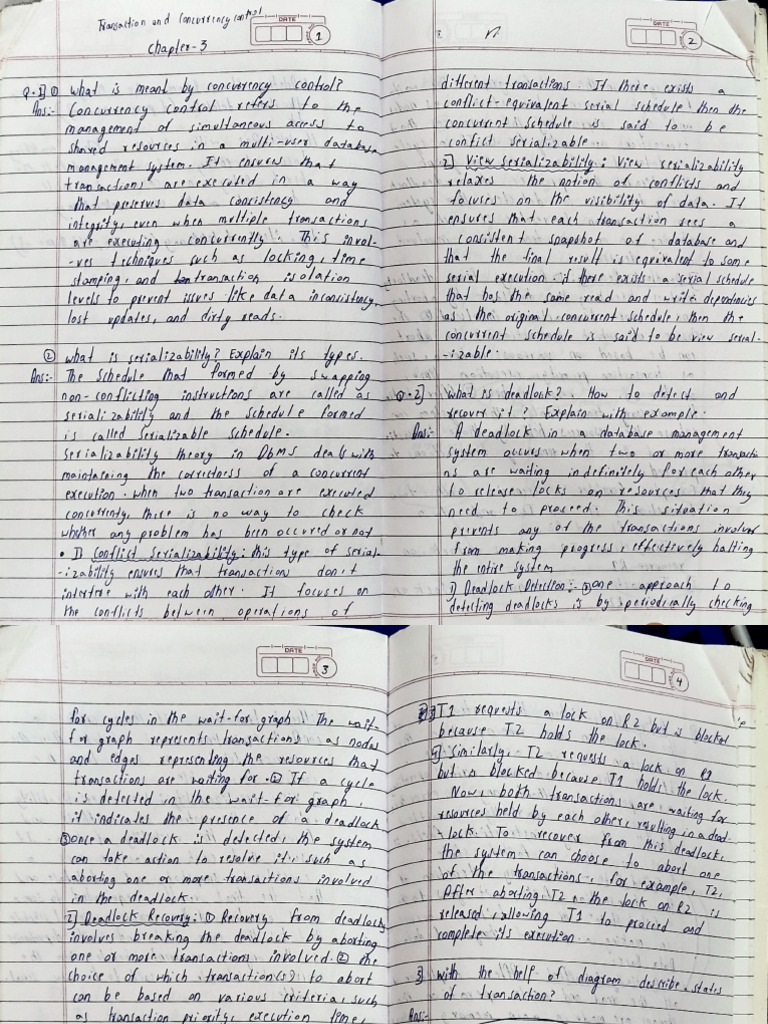 Transaction and Concurrency control
Chapter-3
DATE
1
Q.1] ① What is meant by concurrency control?
Ans:- Concurrency control refers to the
management of simultaneous access to
shared resources in a multi-user database
management system. It ensures that
transactions are executed in a way
that preserves data consistency and
integrity, even when multiple transactions
are executing concurrently. This invol-
-ves techniques such as locking, time
stamping, and transaction isolation
levels to prevent issues like data inconsistency,
lost updates, and dirty reads.
② what is serializability? Explain its types.
Ans:- The schedule that formed by swapping
non-conflicting instructions are called as
serializability and the schedule formed
is called serializable schedule.
Serializability theory in DBMS deals with
maintaining the correctness of a concurrent
execution. when two transaction are executed
concurrenty, there is no way to check
whether any problem has been occured or not
• 1] Conflict Serializability: this type of serial-
-izability ensures that transactions don't
interfere with each other. It focuses on
the conflicts between operations of
DATE
2
different transactions. If there exists a
conflict-equivalent serial schedule then the
concurrent schedule is said to be
conflict serializable.
2] View serializability: View serializability
relaxes the notion of conflicts and
focuses on the visibility of data. It
ensures that each transaction sees a
consistent snapshot of database and
that the final result is equivalent to some
serial execution if there exists a serial schedule
that has the same read and write dependencies
as the original concurrent schedule, then the
concurrent schedule is said to be view serial-
-izable.
Q.2] what is deadlock? How to detect and
recover it? Explain with example.
Ans:- A deadlock in a database management
system occurs when two or more transactio
ns are waiting indefinitely for each other
to release locks on resources that they
need to proceed. This situation
prevents any of the transactions involved
from making progress, effectively halting
the entire system
1) Deadlock Detection:- ① one approach to
detecting deadlocks is by periodically checking
DATE
3
for cycles in the wait-for graph. The wait-
for graph represents transactions as nodes
and edges representing the resources that
transactions are waiting for. ② If a cycle
is detected in the wait-for graph,
it indicates the presence of a deadlock
③ once a deadlock is detected, the system
can take action to resolve it, such as
aborting one or more transactions involved
in the deadlock.
2] Deadlock Recovery: ① Recovery from deadlock
involves breaking the deadlock by aborting
one or more transactions involved. ② the
choice of which transaction(s) to abort
can be based on various criteria, such
as transaction priority, execution time,
DATE
4
T1 requests a lock on R2 but is blocked
because T2 holds the lock.
Similarly, T2 requests a lock on R1
but is blocked because T1 holds the lock.
Now, both transactions are waiting for
resources held by each other, resulting in a dead-
-lock. To recover from this deadlock,
the system can choose to abort one
of the transactions, for example, T2.
After aborting T2, the lock on R2 is
released, allowing T1 to proceed and
complete its execution.
3] with the help of diagram describe states
of transaction?
Ans:-